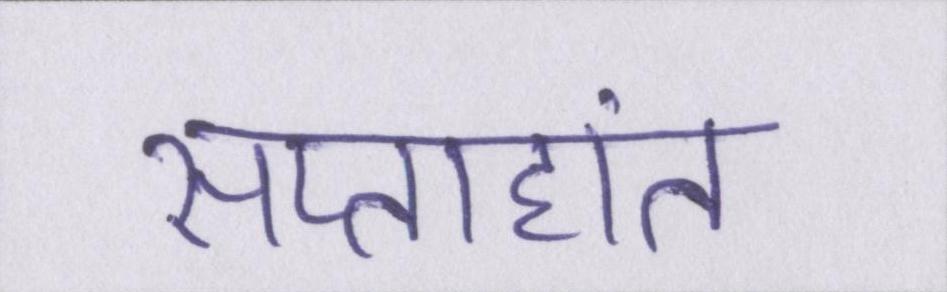 सप्ताहांत